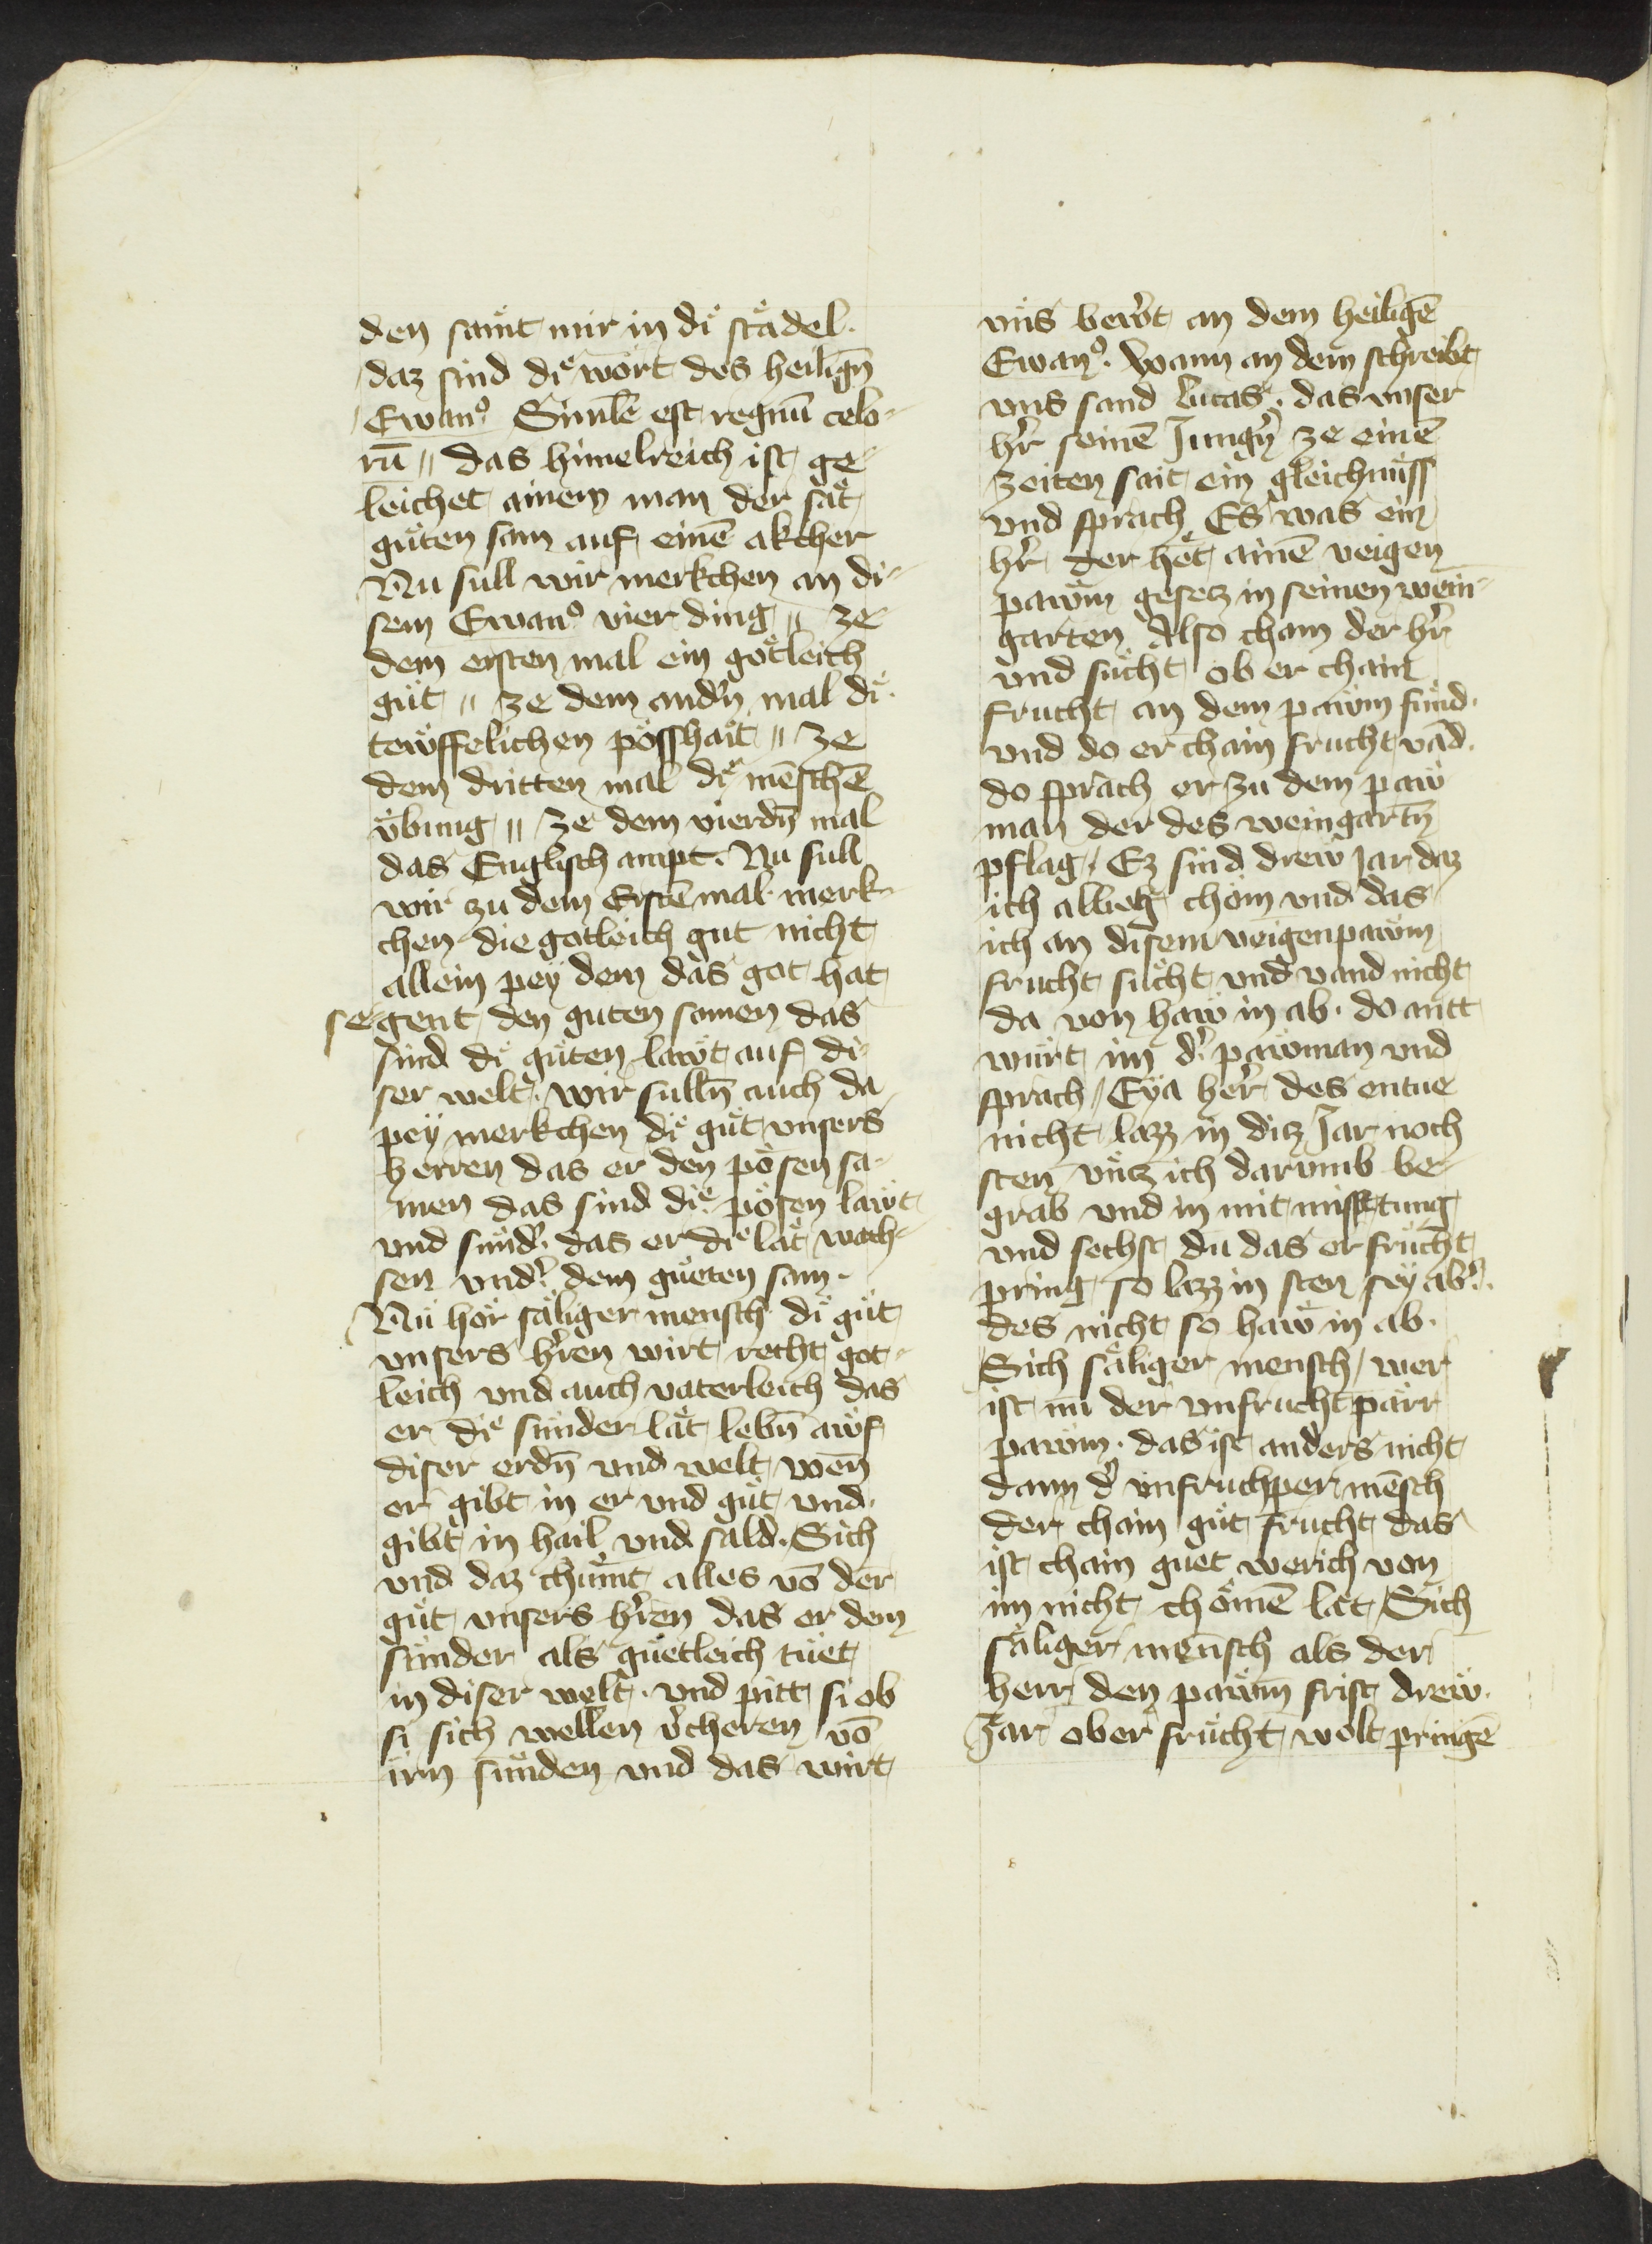 den samͤt mir in diͤ staͤdel.
daz sind diͤ wort des heilign̄
Ewan⁹ Simile est regnū celo⸗
rū ॥ das himelreich ist ge⸗
leichet ainem man der saͤt
guͤten sam auf einē akcher
Nu sull wir merkchen an di⸗
sem Ewan⁹ vier ding ॥ ze
dem ersten mal ein goͤtleich
guͤt ॥ ze dem andn̄ mal diͤ
tewffelichen poͤsshait ॥ ze
dem dritten mal diͤ mēschē
vͤbung ॥ ze dem vierdn̄ mal
das Englisch ampt. Nu sull
wir zu dem Erstē mal merk⸗
chen die gotleich gut nicht
allein pey dem das got hat
segent den guten samen das
sind diͤ guͤten lawt auf di⸗
ser welt. wir sulln̄ auch da
pey merkchen diͤ guͤt vnsers
herren das er den poͤsen sa⸗
men das sind diͤ poͤsen lawt
vnd sunḋ. das er diͤ laͤt wach⸗
sen vnd' dem guͤeten sam.
Nu hoͤr saͤliger mensch diͤ guͤt
vnsers hr̄en wirt recht got⸗
leich vnd auch vaterleich das
er diͤ sunder laͤt lebn̄ awf
diser erdn̄ vnd welt wen̄
er gibt in er vnd guͤt vnd
gibt in hail vnd sald. Sich
vnd daz chuͤmt alles vō der
guͤt vnsers hr̄en das er dem
sunder als guͤetleich tuͤet
in diser welt. vnd pitt si ob
si sich wellen v'cheren vō
irn suͤnden vnd das wirt
vns bewͤrt an dem heiligē
Ewan⁹. Wann an dem schreibt
vns sand Lucas. das vnser
hr̄ seinē Jungn̄ ze einē
zeiten sait ein gleichnuͤss
vnd sprach Es was ein
hr̄ der heͤt ainē veigen
pawͤm gesetz in seinen wein⸗
garten Also cham der hr̄
vnd suͤcht ob er chain
frucht an dem pawͤm fuͤnd.
vnd do er chain frucht vād.
do sprach er zu dem paw
man der des weingartn̄
pflag / Ez sind drew jar daz
ich allweg chom vnd das
ich an disem veigenpawͤm
frucht suͤcht vnd vand nicht
da von haw in ab. do antt
wuͤrt im d' pawman vnd
sprach / Eya her̄ des entue
nicht lazz in ditz Jar noch
sten vͤntz ich darumb be⸗
grab vnd in mit misstung
vnd sechst du das er fruͤcht
pring so lazz in sten sey ab'
des nicht so haw in ab.
Sich saͤliger mensch / wer
ist nu der vnfrucht paͤrr
pawͤm. das ist anders nicht
dann d' vnfruchper mēsch
der chain guͤt frucht das
ist chain guet werich von
im nicht choͤmē laͤt Sich
saͤliger mensch als der
herr den pawͤm frist drew
Jar ob er fruͤcht wolt pringē